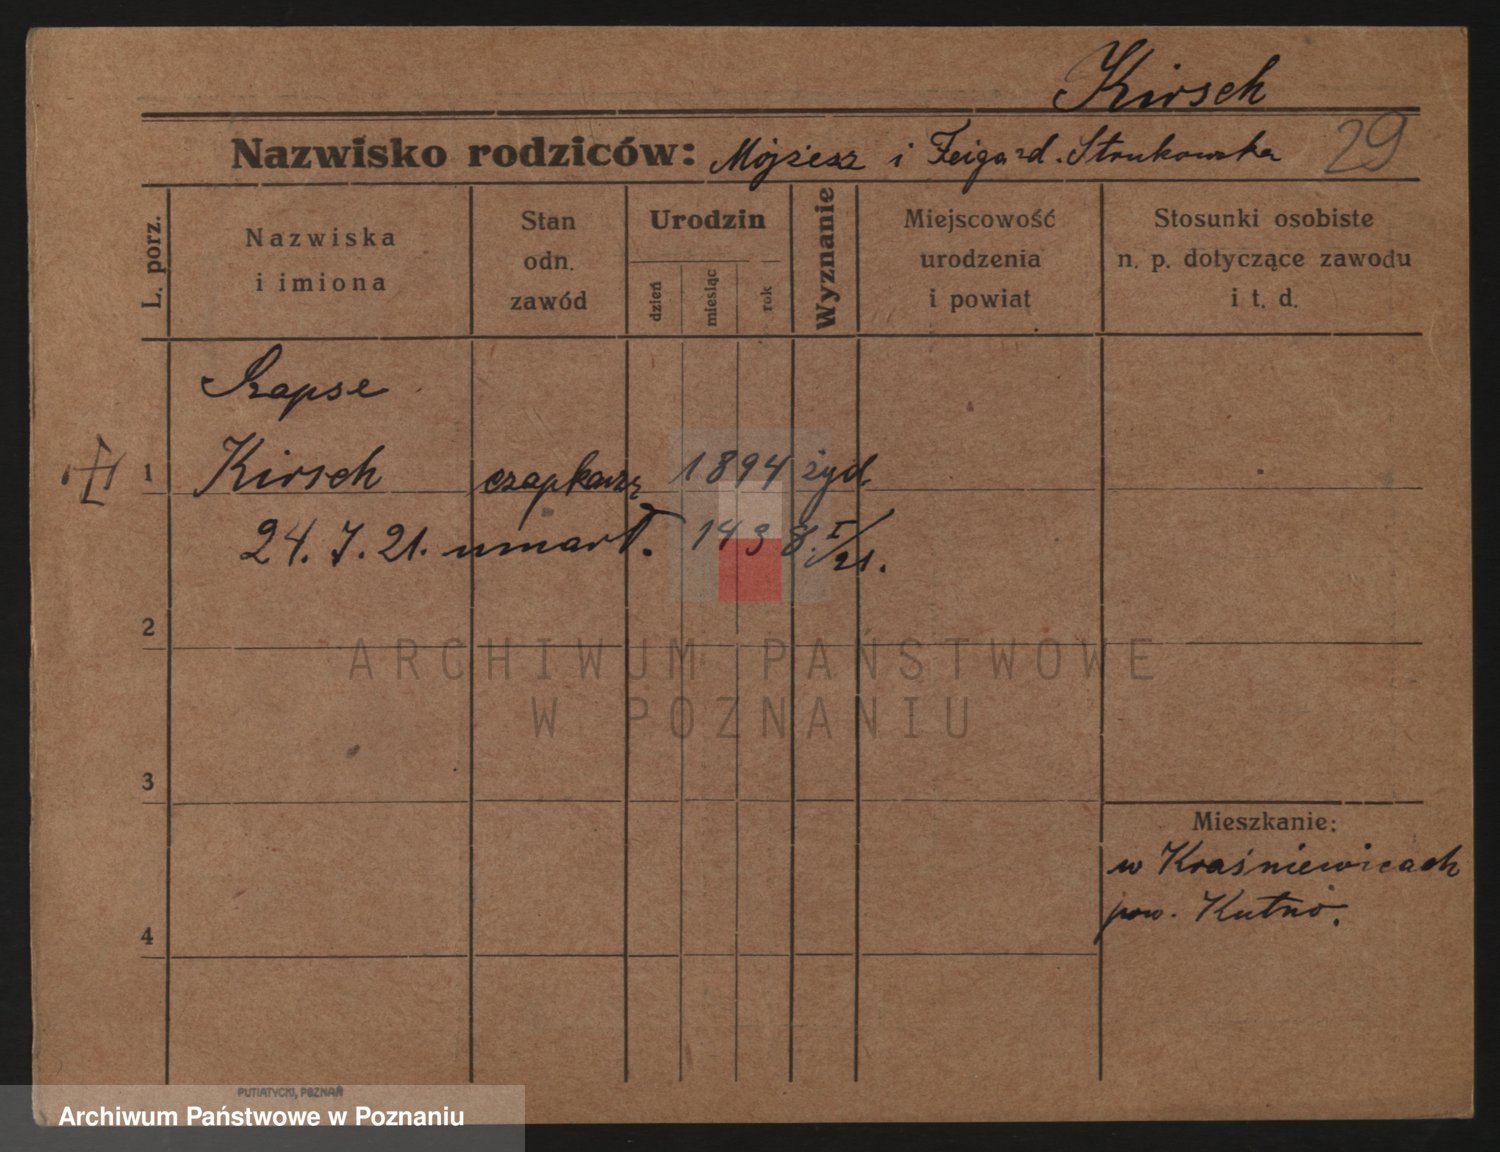 Kirsch
Nazwisko rodziców: Mojżesz i Feiga zd. Strukowska 29
L. porz.
Nazwiska
i imiona
Stan
odn.
zawód
Urodzin
dzień
miesiąc
rok
Wyznanie
Miejscowość
urodzenia
i powiat
Stosunki osobiste
n. p. dotyczące zawodu
i t. d.
Szapse
1 Kirsch czapkarz 1894 żyd
24. 7. 21. umarł. 143 8. I/21.
2
3
4
Mieszkanie:
w Kraśniewicach
pow. Kutno.
ARCHIWUM PAŃSTWOWE
W POZNANIU
PUTIATYCKI, POZNAŃ
Archiwum Państwowe w Poznaniu